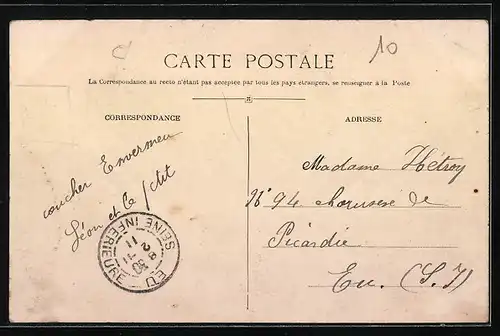 10
CARTE POSTALE
La Correspondance au recto n'étant pas acceptée par tous les pays étrangers, se renseigner à la Poste
CORRESPONDANCE
ADRESSE
coucher Envermeu
Léon et le ptit
Madame Hétroy
N° 94 chaussée de
Picardie
Eu. (S. I)
EU
SEINE INFÉRIEURE
8 30
2 - 11
11